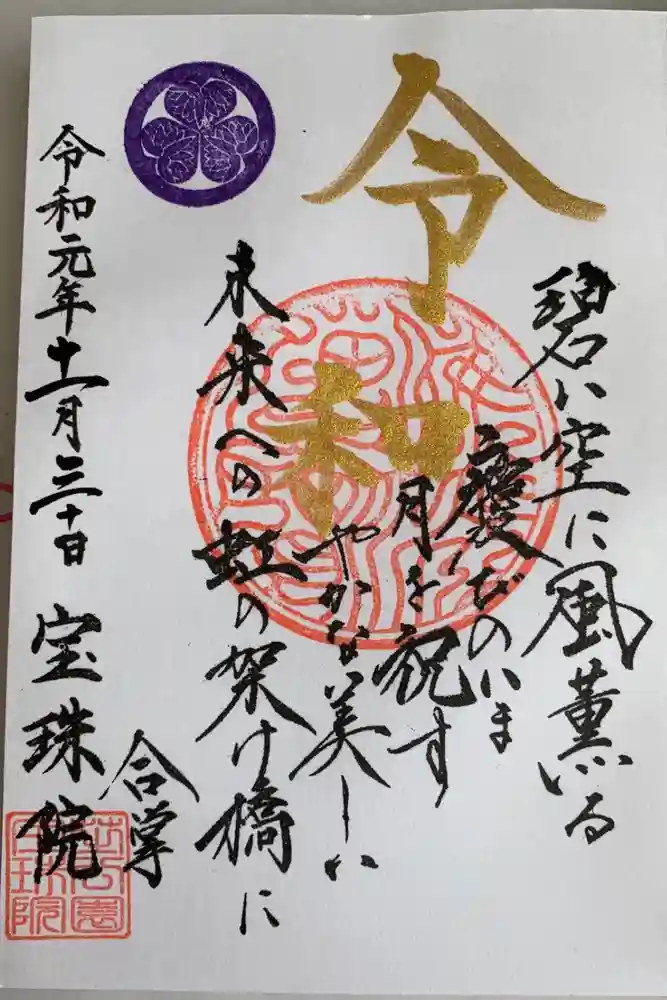 碧い空に風薫る
慶びのいま
令
月を祝す
和
やかな美しい
未来への虹の架け橋に
合掌
令和元年十一月三十日 宝珠院
芝公園
宝珠院